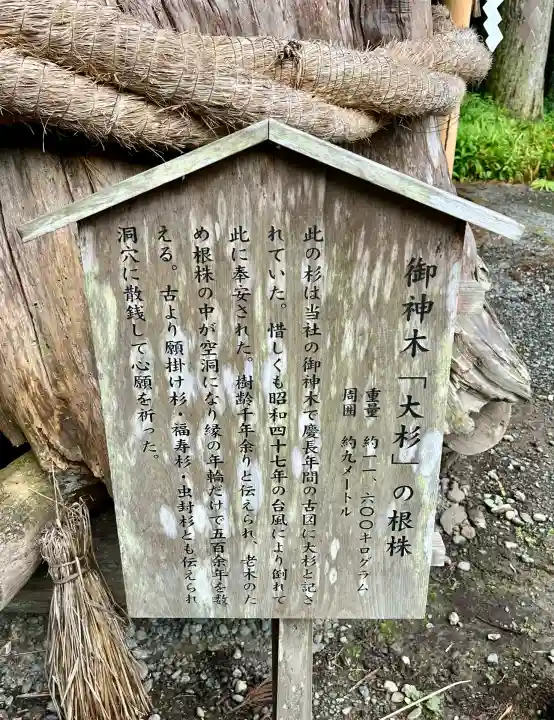 御神木「大杉」の根株
重量　約一一、六〇〇キログラム
周囲　約九メートル
此の杉は当社の御神木で慶長年間の古図に大杉と記さ
れていた。惜しくも昭和四十七年の台風により倒れて
此に奉安された。樹齢千年余りと伝えられ、老木のた
め根株の中が空洞になり縁の年輪だけで五百余年を数
える。古より願掛け杉・福寿杉・虫封杉とも伝えられ
洞穴に散銭して心願を祈った。